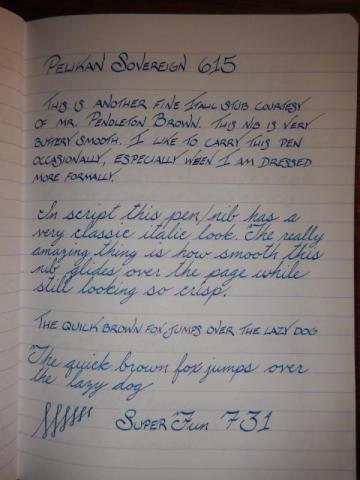 PELIKAN SOVEREIGN 615
THIS IS ANOTHER FINE ITALIC STUB COURTESY
OF MR. PENDLETON BROWN. THIS NIB IS VERY
BUTTERY SMOOTH. I LIKE TO CARRY THIS PEN
OCCASIONALLY, ESPECIALLY WEEN I AM DRESSED
MORE FORMALLY.
In script this pen/nib has a
very classic italic look. The really
amazing thing is how smooth this
nib glides over the page while
still looking so crisp.
THE QUICK BROWN FOX JUMPS OVER THE LAZY DOG
The quick brown fox jumps over
the lazy dog
SUPER Fun 731